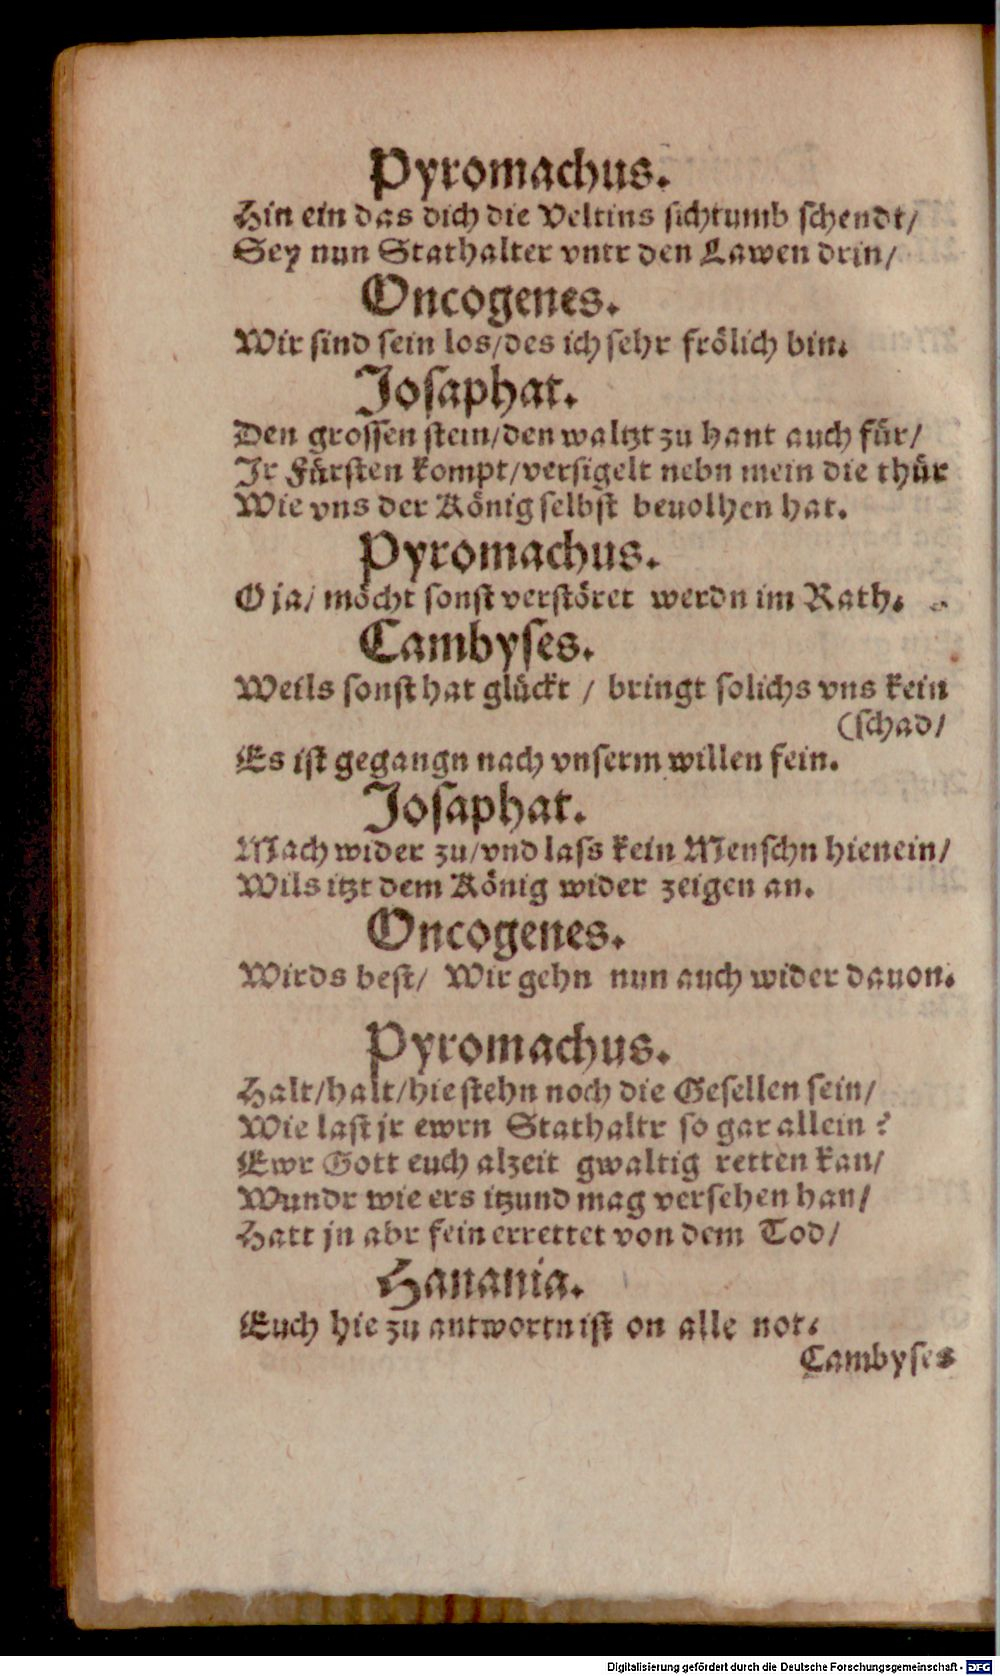 Pyromachus.
Hin ein das dich die Veltins sichtumb schendt/
Sey nun Stathalter vntr den Lawen drin/
Oncogenes.
Wir sind sein los/des ich sehr frölich bin.
Josaphat.
Den grossen stein/den waltzt zu hant auch für/
Jr Fürsten kompt/versigelt nebn mein die thür
Wie vns der König selbst beuolhen hat.
Pyromachus.
O ja/ möcht sonst verstöret werdn im Rath.
Cambyses.
Weils sonst hat glückt / bringt solichs vns kein
(schad/
Es ist gegangn nach vnserm willen fein.
Josaphat.
Mach wider zu/vnd lass kein Menschn hienein/
Wils itzt dem König wider zeigen an.
Oncogenes.
Wirds best/ Wir gehn nun auch wider dauon.
Pyromachus.
Halt/halt/hie stehn noch die Gesellen sein/
Wie last jr ewrn Stathaltr so gar allein?
Ewr Gott euch alzeit gwaltig retten kan/
Wundr wie ers itzund mag versehen han/
Hatt jn abr fein errettet von dem Tod/
Hanania.
Euch hie zu antwortn ist on alle not.
Cambyses
Digitalisierung gefördert durch die Deutsche Forschungsgemeinschaft - DFG